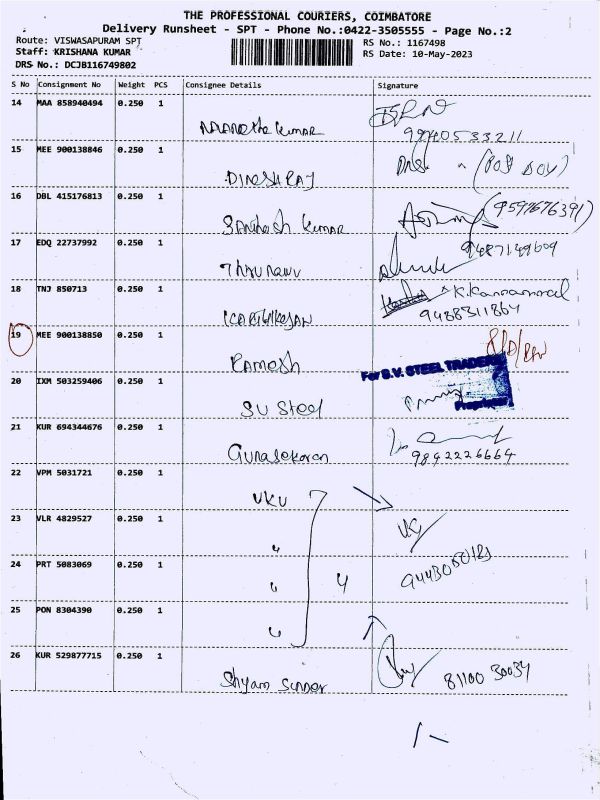 THE PROFESSIONAL COURIERS, COIMBATORE
Delivery Runsheet - SPT - Phone No.:0422-3505555 - Page No.:2
Route: VISWASAPURAM SPT
RS No.: 1167498
Staff: KRISHANA KUMAR
RS Date: 10-May-2023
DRS No.: DCJB116749802
S No Consignment No Weight PCS Consignee Details Signature
14 MAA 858940494 0.250 1
Kumar 9940533211
15 MEE 900138846 0.250 1
DINESHRAJ
16 DBL 415176813 0.250 1
Santhosh Kumar (9597676391)
17 EDQ 22737992 0.250 1
9487149609
18 TNJ 850713 0.250 1
K.Kannammal
9488311864
19 MEE 900138850 0.250 1
Ramesh
20 IXM 503259406 0.250 1
For S.V. STEEL TRADERS
SV Steel
Proprietor
21 KUR 694344676 0.250 1
Gunasekaran 9842226664
22 VPM 5031721 0.250 1
VKV
23 VLR 4829527 0.250 1
"
24 PRT 5083069 0.250 1
" 4
25 PON 8304390 0.250 1
"
26 KUR 529877715 0.250 1
Shyam Sunder 81100 30034